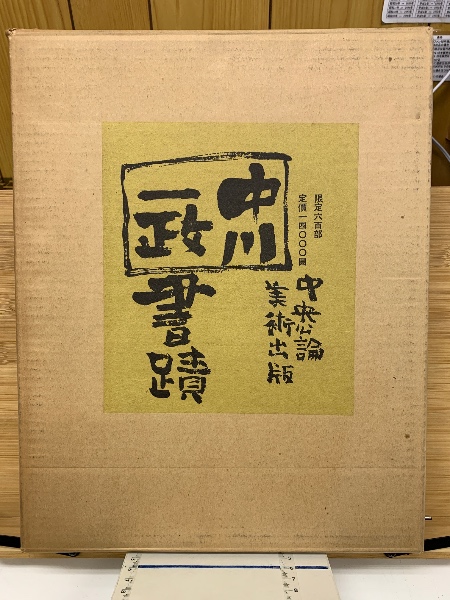 限定六百部
定價一四〇〇〇圓
中川
一政
書蹟
中央公論
美術出版